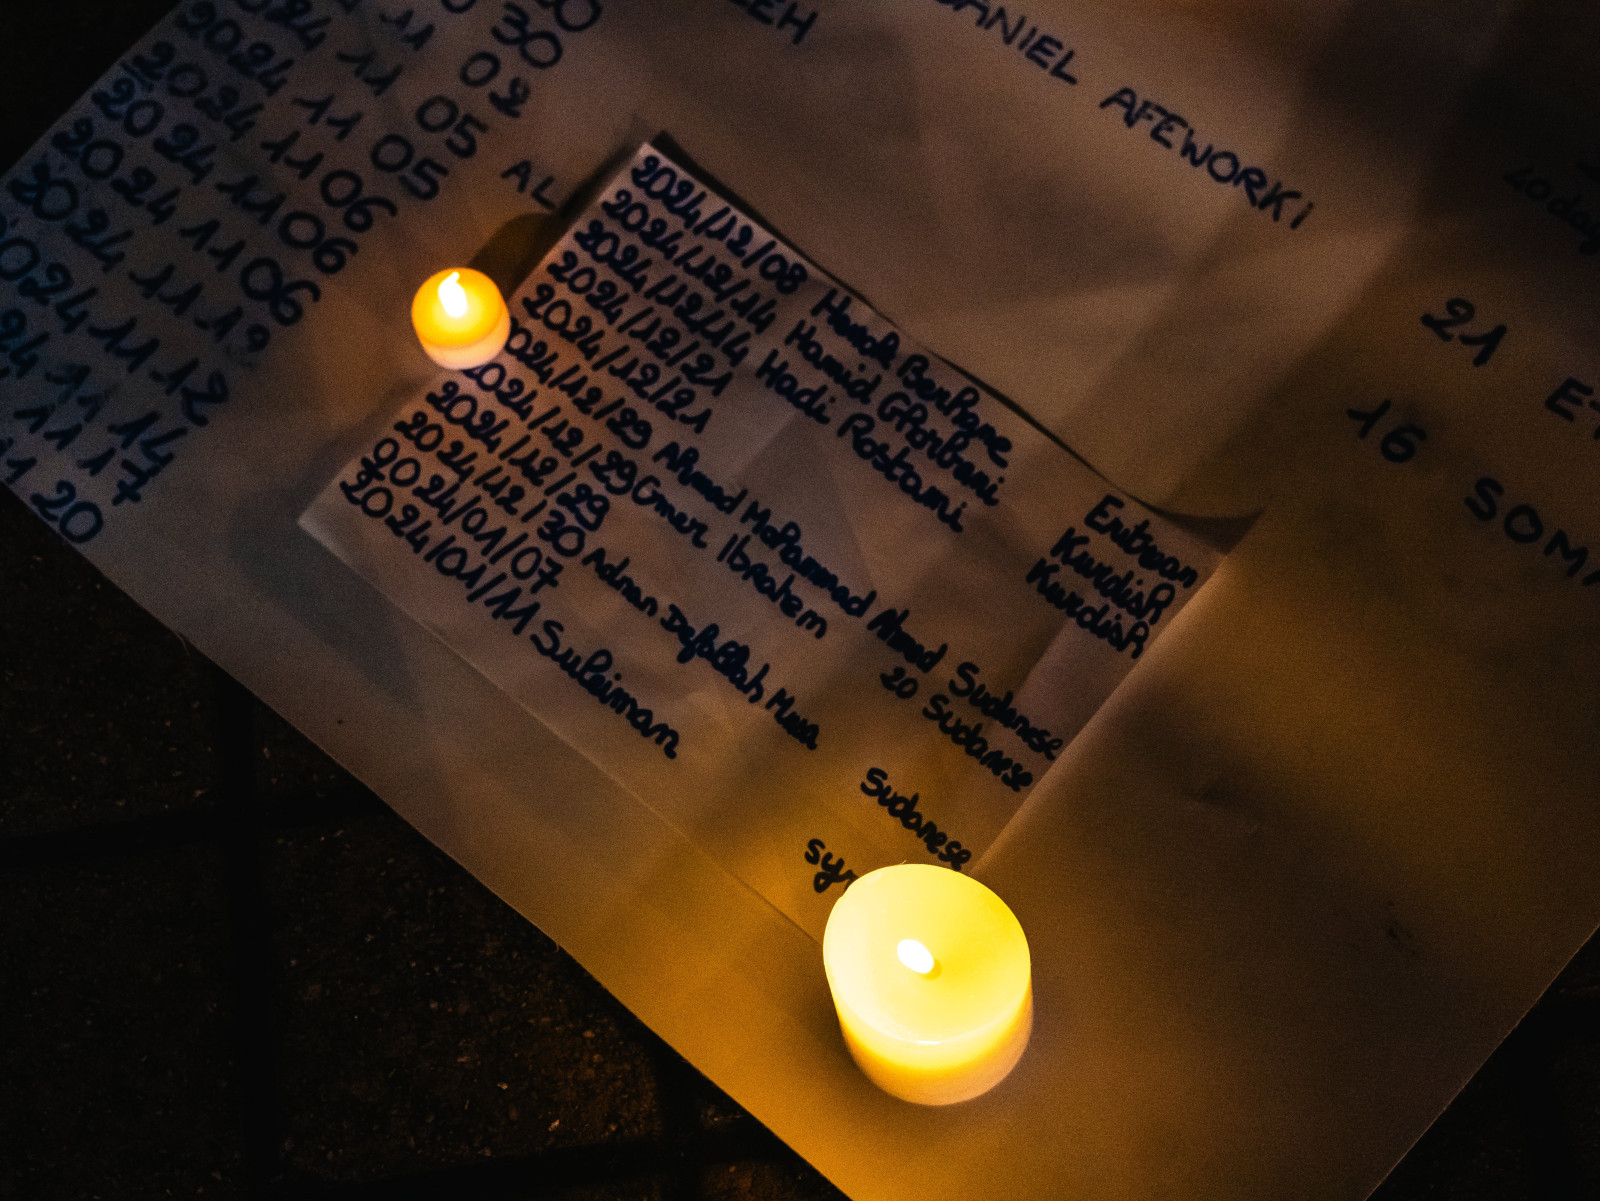 30
DANIEL AFEWORKI
11 02
2024 11 05
2024 11 05
2024 11 06
AL
2024 11 06
2024 11 06
2024 11 12
11 14
11 17
20
21
16 SOMA
2024/12/08 Henok Berhane Eritrean
2024/12/14 Hamid Ghorbani Kurdish
2024/12/14 Hadi Rostami Kurdish
2024/12/21
2024/12/21
2024/12/29 Ahmed Mohammed Ahmed Sudanese
2024/12/29 Omer Ibrahem 20 Sudanese
2024/12/29
2024/12/30 Adnan Defallah Musa Sudanese
2024/01/07
2024/01/11 Suleiman Syr